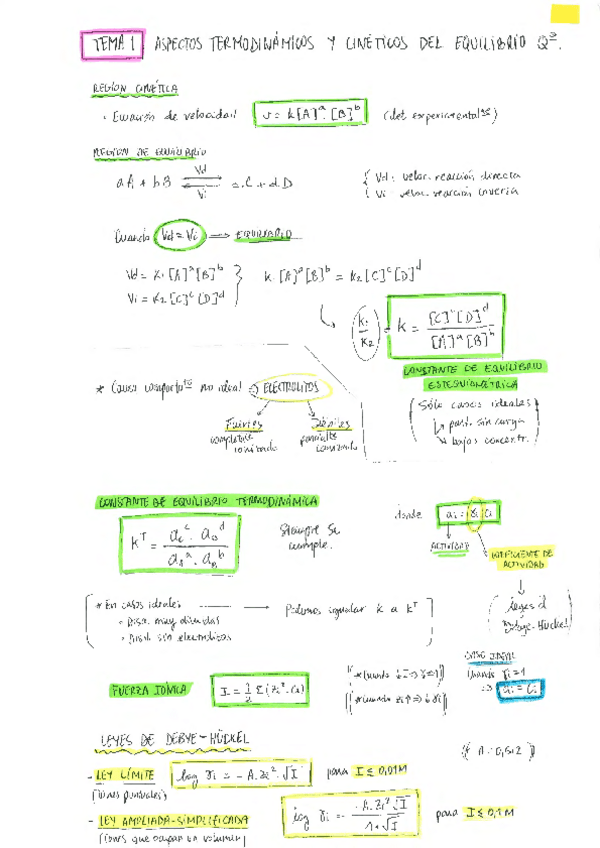 TEMA 1 ASPECTOS TERMODINÁMICOS Y CINÉTICOS DEL EQUILIBRIO Qº.
REGIÓN CINÉTICA
· Ecuación de velocidad: v = k[A]ᵃ·[B]ᵇ
REGIÓN DE EQUILIBRIO
aA + bB ⇌ cC + dD
Vd
Vi
{ Vd: veloc. reacción directa
Vi: veloc. reacción inversa
Cuando Vd = Vi → EQUILIBRIO
Vd = K₁[A]ᵃ[B]ᵇ } K₁[A]ᵃ[B]ᵇ = K₂[C]ᶜ[D]ᵈ
Vi = K₂[C]ᶜ[D]ᵈ
K₁/K₂ = K = [C]ᶜ[D]ᵈ / [A]ᵃ[B]ᵇ
CONSTANTE DE EQUILIBRIO
ESTEQUIOMÉTRICA
(Sólo casos ideales
part. sin carga
bajas concentr.)
* Causa comporto no ideal → ELECTROLITOS
Fuertes
Débiles
CONSTANTE DE EQUILIBRIO TERMODINÁMICA
Kᵀ = a_Cᶜ · a_Dᵈ / a_Aᵃ · a_Bᵇ
Siempre se
cumple.
donde ai = γi·ci
ACTIVIDAD
COEFICIENTE DE
ACTIVIDAD
(leyes d
Debye-Hückel)
[* En casos ideales → Podemos igualar K a Kᵀ]
· Disol. muy diluidas
· Disol. sin electrolitos
FUERZA IÓNICA I = ½ Σ(zi²·ci)
CASO IDEAL
Cuando γi=1
⇒ ai = ci
LEYES DE DEBYE-HÜCKEL
(* A = 0,512)
- LEY LÍMITE log γi = -A·zi²·√I para I ≤ 0,01M
(iones puntuales)
- LEY AMPLIADA-SIMPLIFICADA log γi = -A·zi²√I / 1+√I para I ≤ 0,1M
(iones que ocupan un volumen)